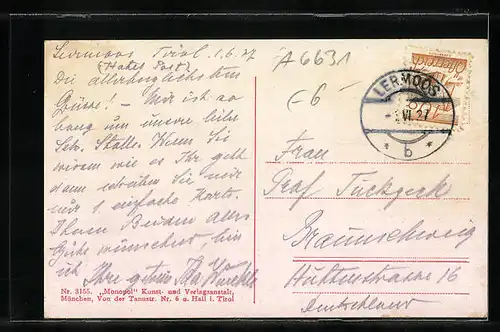 Lermoos Tirol. 1.6.27
(Hotel Post)
Die allerherzlichsten
Grüsse! – Mir ist so
bang um unsere liebe
Seb. Stolle. Wenn Sie
wissen wie es Ihr geht
dann schreiben Sie mir
nur 1 einfache Karte.
Ihnen Beiden alles
Gute wünschend, bin
ich Ihre getreue Ida
Nr. 3155. „Monopol" Kunst- und Verlagsanstalt,
München, Von der Tannstr. Nr. 6 u. Hall i. Tirol
A6631
6
LERMOOS
VI. 27
* b *
Österreich
Frau
Prof
Braunschweig
16
Deutschland